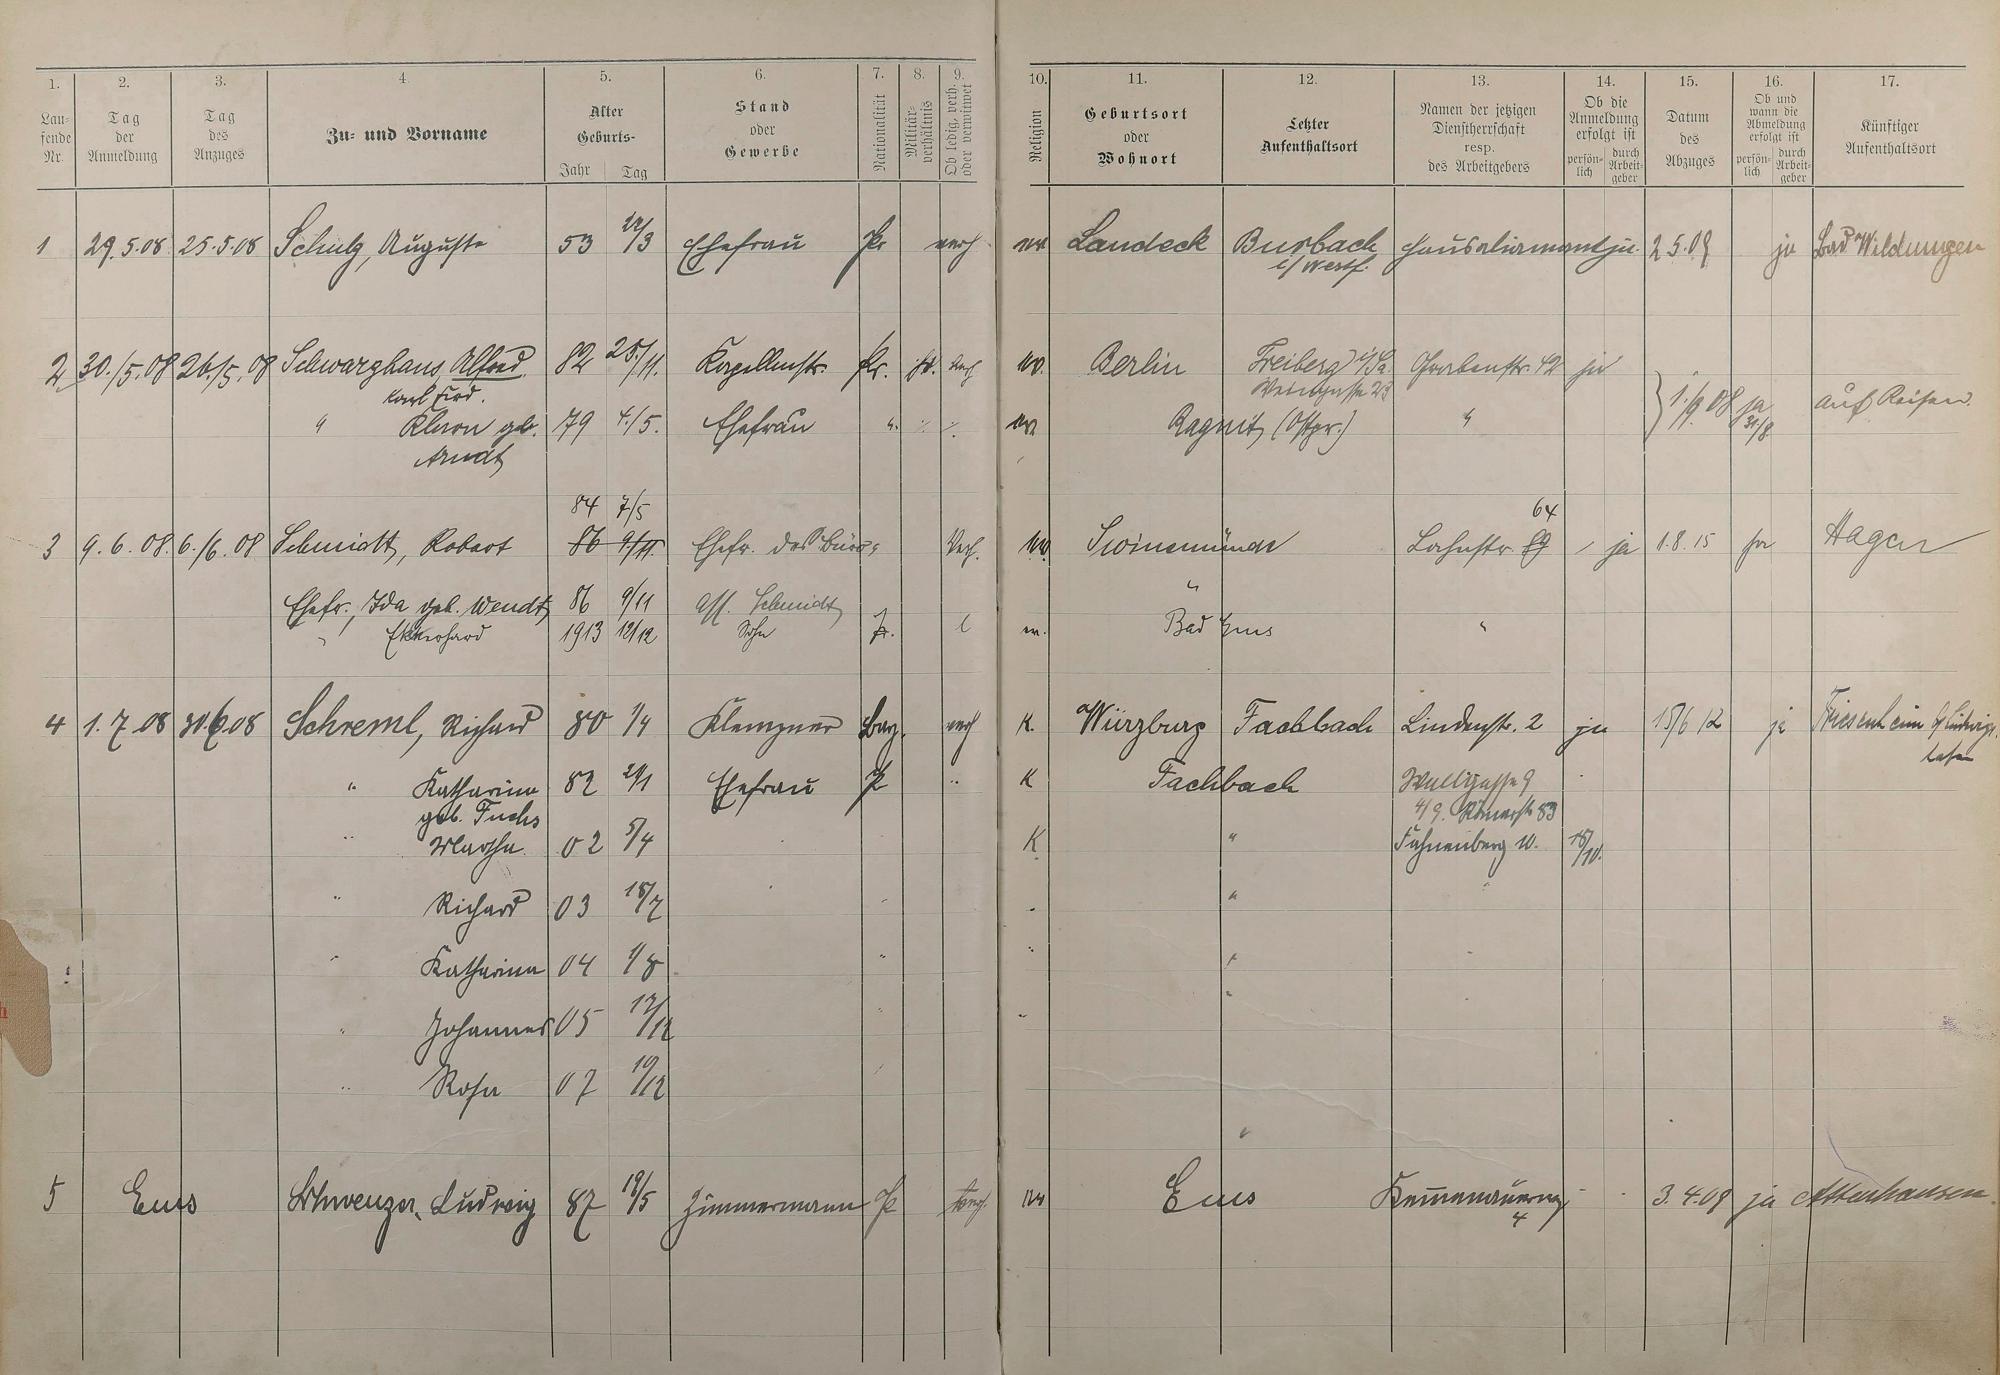 1. 2. 3. 4. 5. 6. 7. 8. 9. 10. 11. 12. 13. 14. 15. 16. 17.
Lau-
fende
Nr.
Tag
der
Anmeldung
Tag
des
Anzuges
Zu- und Vorname
Alter
Geburts-
Jahr Tag
Stand
oder
Gewerbe
Nationalität
Militär-
verhältnis
Ob ledig, verh.
oder verwitwet
Religion
Geburtsort
oder
Wohnort
Letzter
Aufenthaltsort
Namen der jetzigen
Dienstherrschaft
resp.
des Arbeitgebers
Ob die
Anmeldung
erfolgt ist
persön-
lich
durch
Arbeit-
geber
Datum
des
Abzuges
Ob und
wann die
Abmeldung
erfolgt ist
persön-
lich
durch
Arbeit-
geber
Künftiger
Aufenthaltsort
1 29.5.08 25.5.08 Schulz, Auguste 53 Ehefrau Pr verh Landeck Burbach ja 2.5.09 ja Bad Wildungen
i/Westf.
2 30./5.08 26./5.08 Schwarzhans, Alfred 82 25./11. Pr. verh Berlin Freiberg i/Sa. Grabenstr. 42 ja
Karl Ferd.
" geb. 79 4./5. Ehefrau " Ragnit (Ostpr.) " 1./9 08 ja 31/8 auf Reisen.
Arndt
84 7/5 64
3 9.6.08. 6./6.08 Schmidt, Robert 86 9/11 Ehefr. des Büro- Verh. Swinemünde Lahnstr. 89 ja 1.8.15 ja Hagen
Ehefr., Ida geb. Wendt 86 9/11 Ass. Schmidt "
" Ekkerhard 1913 12/12 Sohn Pr. l Bad Ems "
4 1.7.08 30.6.08 Schreml, Richard 80 1/4 Klempner Bay. verh K. Würzburg Fachbach Lindenstr. 2 ja 15/6 12 ja Friesenheim b/Ludwigs-
hafen
" Katharina 82 Ehefrau P " K Fachbach Wallgasse 9
geb. Fuchs 4/9. Römerstr. 83
" Martha 02 5/4 K " Fahnenberg 10. 15/10.
" Richard 03 18/7 "
" Katharina 04 1/8 "
" Johannes 05 12/12 "
" Rosa 07 10/12
"
5 Ems Schwenzer, Ludwig 87 19/5 Zimmermann P Ems Kemenauerweg 3.4.09 ja Attenhausen
4